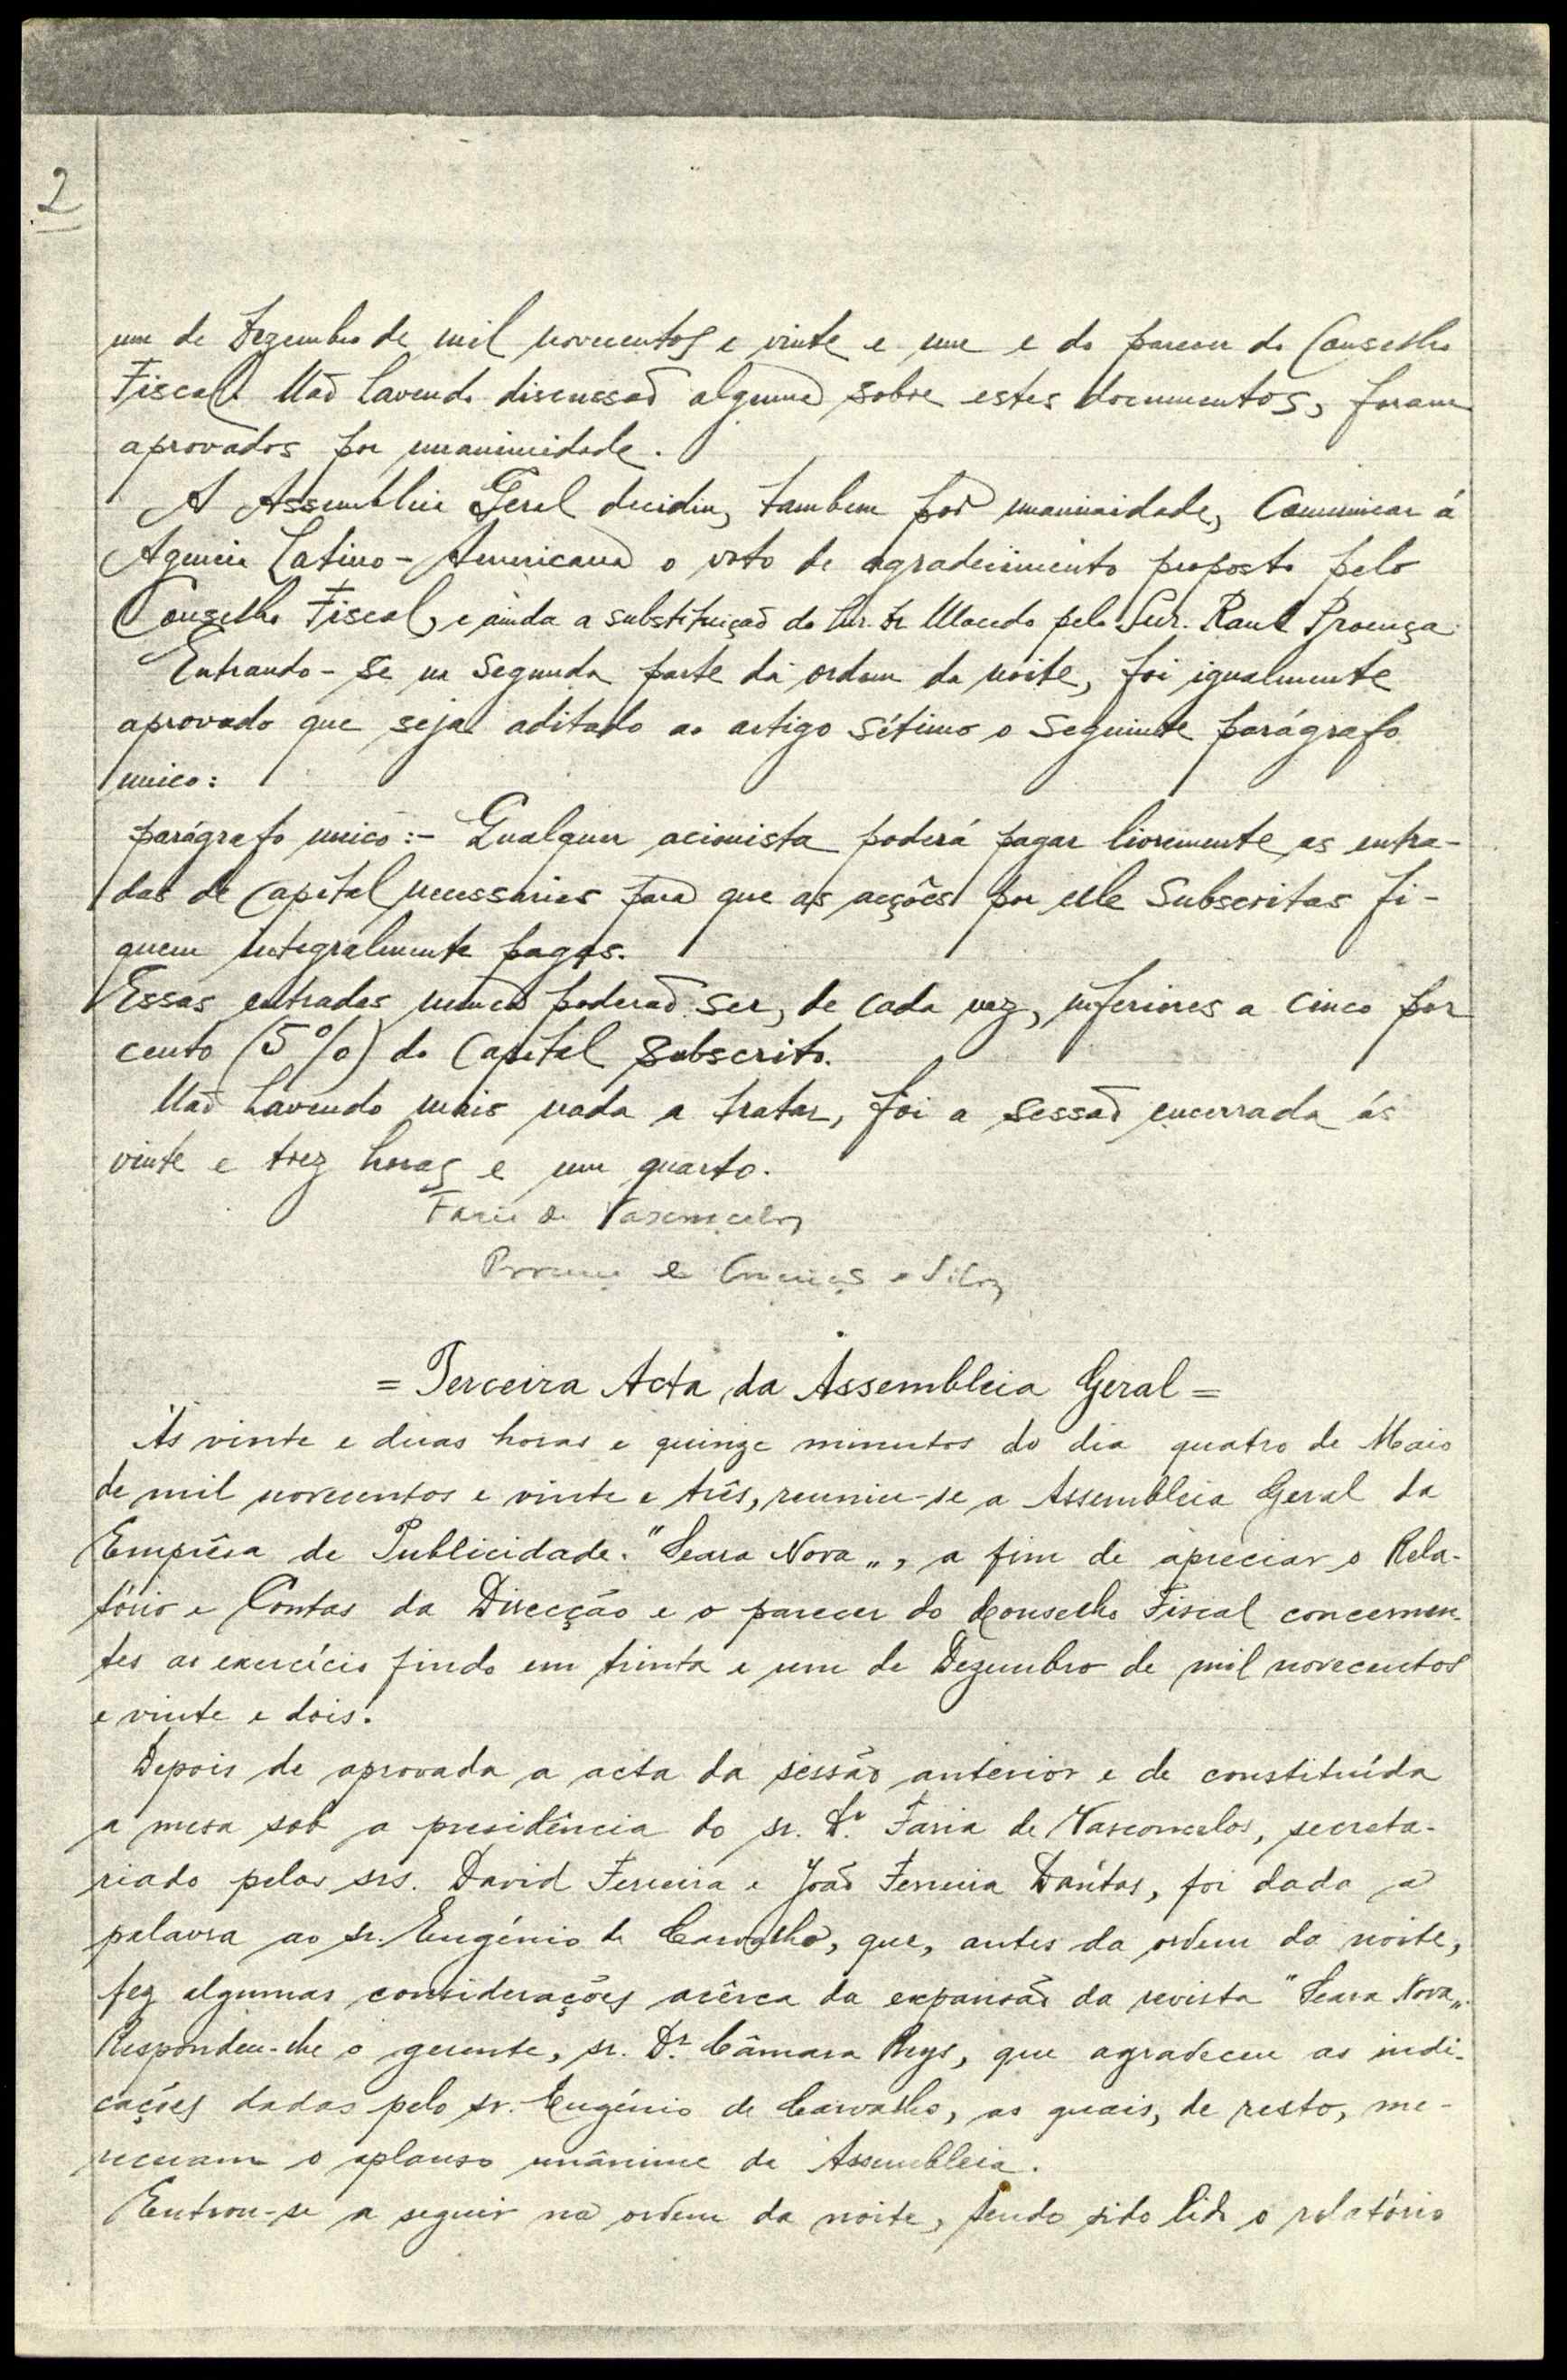 2
um de Dezembro de mil novecentos e vinte e um e do parecer do Conselho
Fiscal. Não havendo discussão alguma sobre estes documentos, foram
aprovados por unanimidade.
A Assembleia Geral decidiu, tambem por unanimidade, comunicar á
Agencia Latino-Americana o voto de agradecimento proposto pelo
Conselho Fiscal, e ainda a substituição do Macedo pelo Snr. Raul Proença.
Entrando-se na segunda parte da ordem da noite, foi igualmente
aprovado que seja aditado ao artigo sétimo o seguinte parágrafo
unico:
parágrafo unico:- Qualquer acionista poderá pagar livremente as entra-
das de capital necessarias para que as acções por elle subscritas fi-
quem integralmente pagas.
Essas entradas nunca poderão ser, de cada vez, inferiores a cinco por
cento (5%) do capital subscrito.
Não havendo mais nada a tratar, foi a sessão encerrada ás
vinte e trez horas e um quarto.
Faria de Vasconcelos
e Silva
= Terceira Acta da Assembleia Geral =
Às vinte e duas horas e quinze minutos do dia quatro de Maio
de mil novecentos e vinte e três, reuniu-se a Assembleia Geral da
Emprêsa de Publicidade "Seara Nova„, a fim de apreciar o Rela-
tório e Contas da Direcção e o parecer do Conselho Fiscal concernen-
tes ao exercício findo em trinta e um de Dezembro de mil novecentos
e vinte e dois.
Depois de aprovada a acta da sessão anterior e de constituída
a mesa sob a presidência do sr. Dr. Faria de Vasconcelos, secreta-
riado pelos srs. David Ferreira e João Ferreira Dántas, foi dada a
palavra ao sr. Eugénio de Carvalho, que, antes da ordem da noite,
fez algumas considerações acêrca da expansão da revista "Seara Nova„.
Respondeu-lhe o gerente, sr. Dr. Câmara Reys, que agradeceu as indi-
cações dadas pelo sr. Eugénio de Carvalho, as quais, de resto, me-
receram o aplauso unânime da Assembleia.
Entrou-se a seguir na ordem da noite, tendo sido lido o relatório